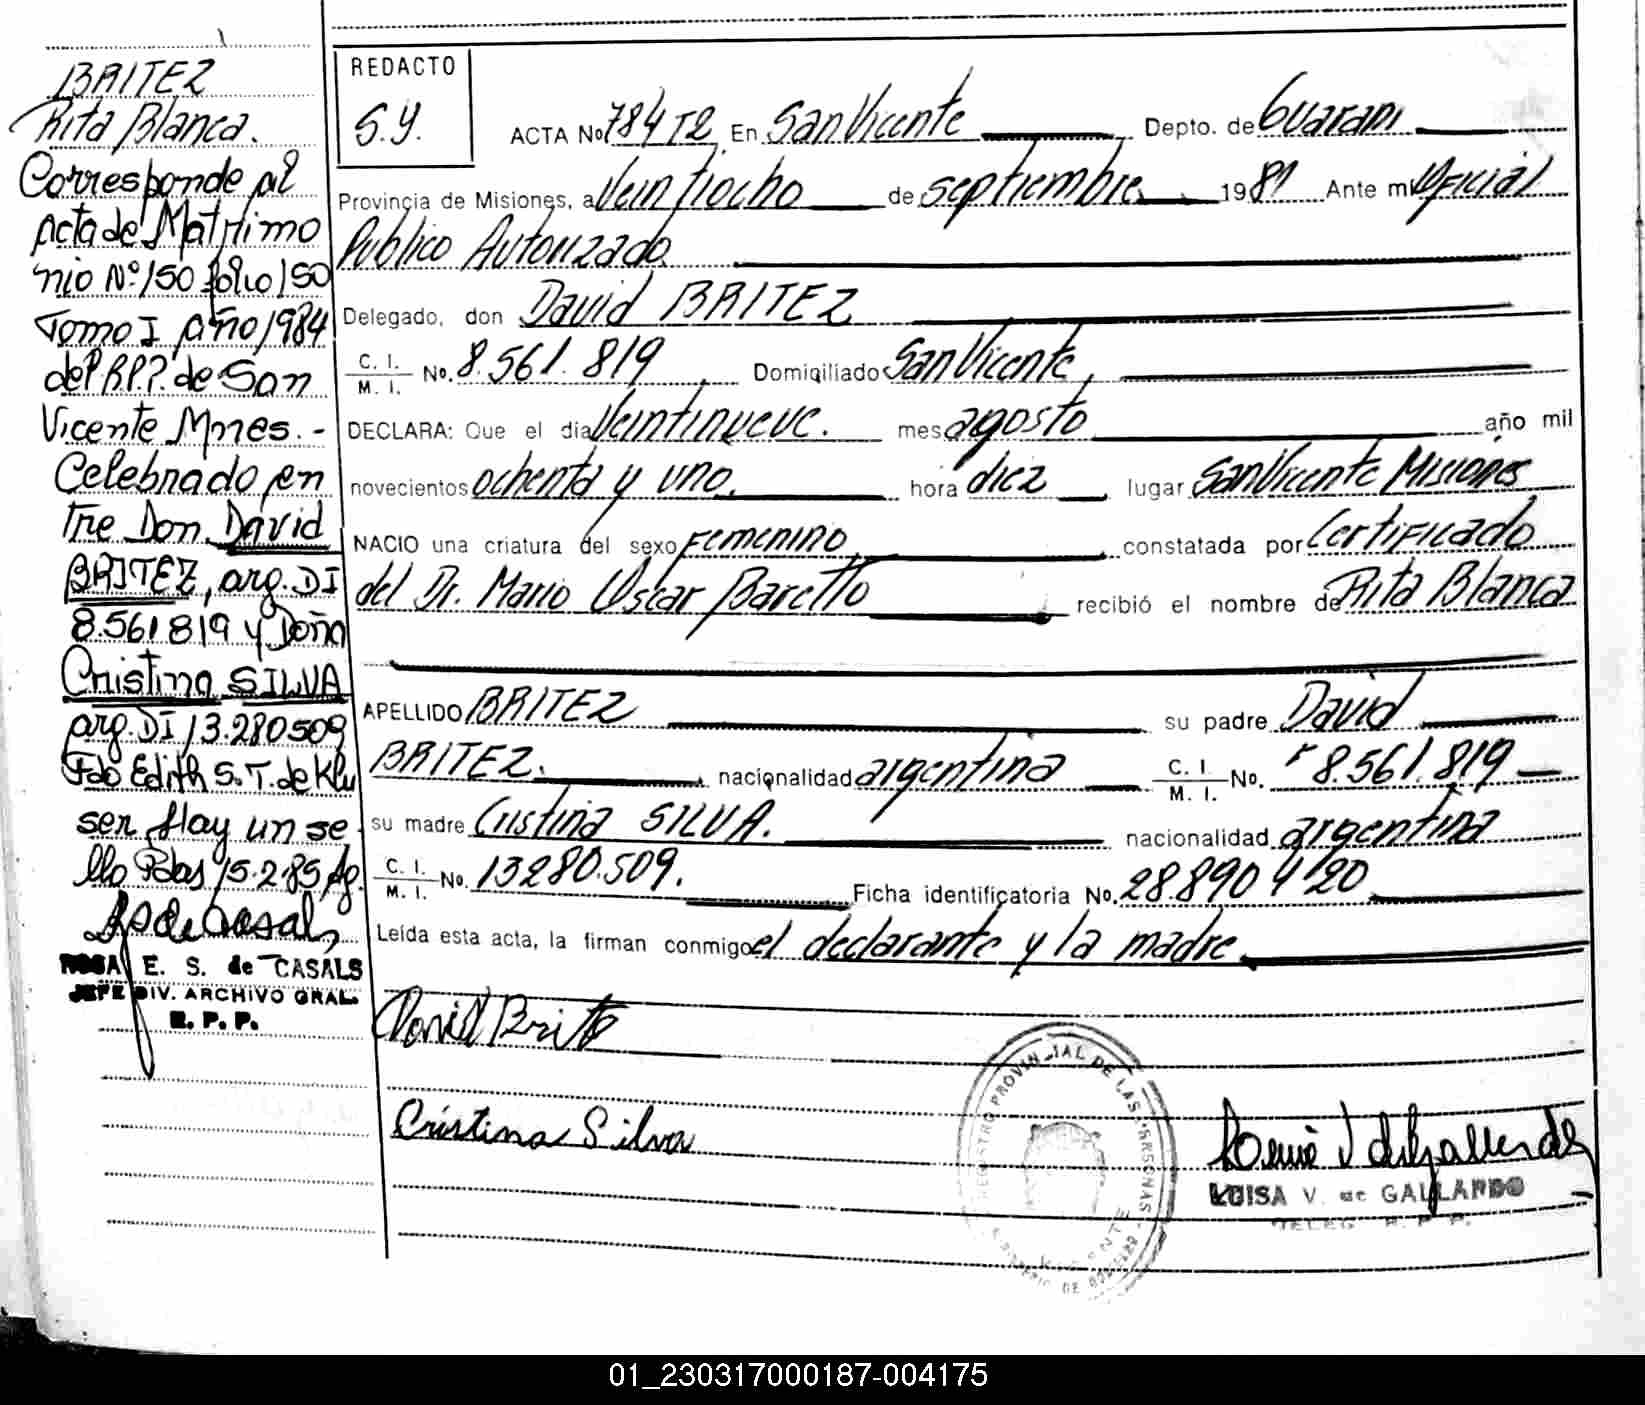 BRITEZ
Rita Blanca.
Corresponde al
Acta de Matrimo
nio Nº 150 folio 150
Tomo I año 1984
del R.P.P. de San
Vicente Mnes. -
Celebrado en
tre Don David
BRITEZ, arg. DI
8.561819 y Doña
Cristina SILVA
arg. DI 13.280509
Fdo Edith S. T. de Klu
ser Hay un se
llo Pdas 15.2.85 Ag.
ROSA E. S. de CASALS
JEFE DIV. ARCHIVO GRAL.
R. P. P.
REDACTO
S.Y.
ACTA No 784 T2 En San Vicente Depto. de Guarani
Provincia de Misiones, a Veintiocho de septiembre 1981 Ante mi Oficial
Publico Autorizado
Delegado, don David BRITEZ
C. I. M. I. No. 8.561.819 Domiciliado San Vicente,
DECLARA: Que el día Veintinueve. mes agosto año mil
novecientos ochenta y uno. hora diez lugar San Vicente Misiones
NACIO una criatura del sexo Femenino constatada por Certificado
del Dr. Mario Oscar Baretto recibió el nombre de Rita Blanca
APELLIDO BRITEZ su padre David
BRITEZ. nacionalidad argentina C. I. M. I. No. 8.561.819
su madre Cristina SILVA. nacionalidad argentina
C. I. M. I. No. 13280.509. Ficha identificatoria No. 28.890.420
Leída esta acta, la firman conmigo el declarante y la madre
Cristina Silva
REGISTRO PROVINCIAL DE LAS PERSONAS
LUISA V. de GALLARDO
DELEG. R. P. P.
01_230317000187-004175